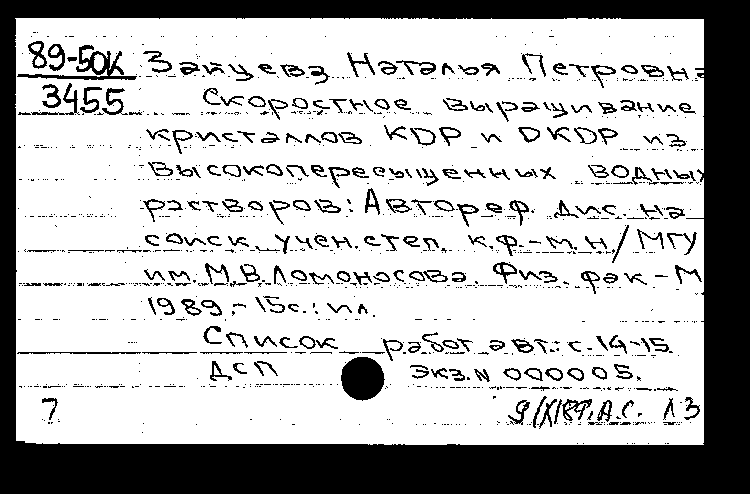 89-50К Зайцева Наталья Петровна
3455 Скоростное выращивание
кристаллов KDP и DKDP из
высокопересыщенных водных
растворов: Автореф. дис. на
соиск. учен. степ. к.ф.-м.н./ МГУ
им. М.В.Ломоносова. Физ. фак - М
1989.- 15с.: ил.
Список работ авт.: с.14-15
ДСП Экз. N 000005.
7 9/X189. А.С. Л3